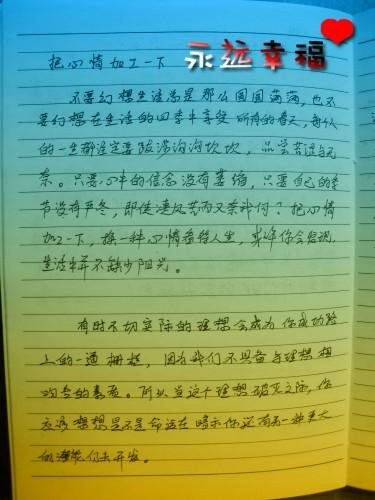 永远幸福
把心情加工一下
不要幻想生活总是那么圆圆满满,也不
要幻想在生活的四季中享受所有的春天,每个人
的一生都注定要跋涉沟沟坎坎,品尝苦涩与无
奈。只要心中的信念没有萎缩,只要自己的季
节没有严冬,即使凄风苦雨又奈我何?把心情
加工一下,换一种心情看待人生,你会发现,
生活中并不缺少阳光。
有时不切实际的理想会成为你成功路
上的一道栅栏,因为我们不具备与理想相
吻合的素质。所以当这个理想破灭之际,你
应该想想是不是命运在暗示你还有另一种更大
的潜能们去开发。